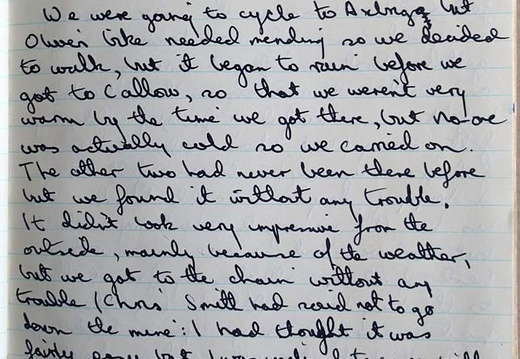 We were going to cycle to but
Owen's bike needed mending so we decided
to walk, but it began to rain before we
got to Callow, so that we weren't very
warm by the time we got there, but no-one
was actually cold so we carried on.
The other two had never been there before
but we found it without any trouble.
It didn't look very impressive from the
outside, mainly because of the weather,
but we got to the chain without any
trouble (Chris Smith had said not to go
down the mine: I had thought it was
fairly easy but